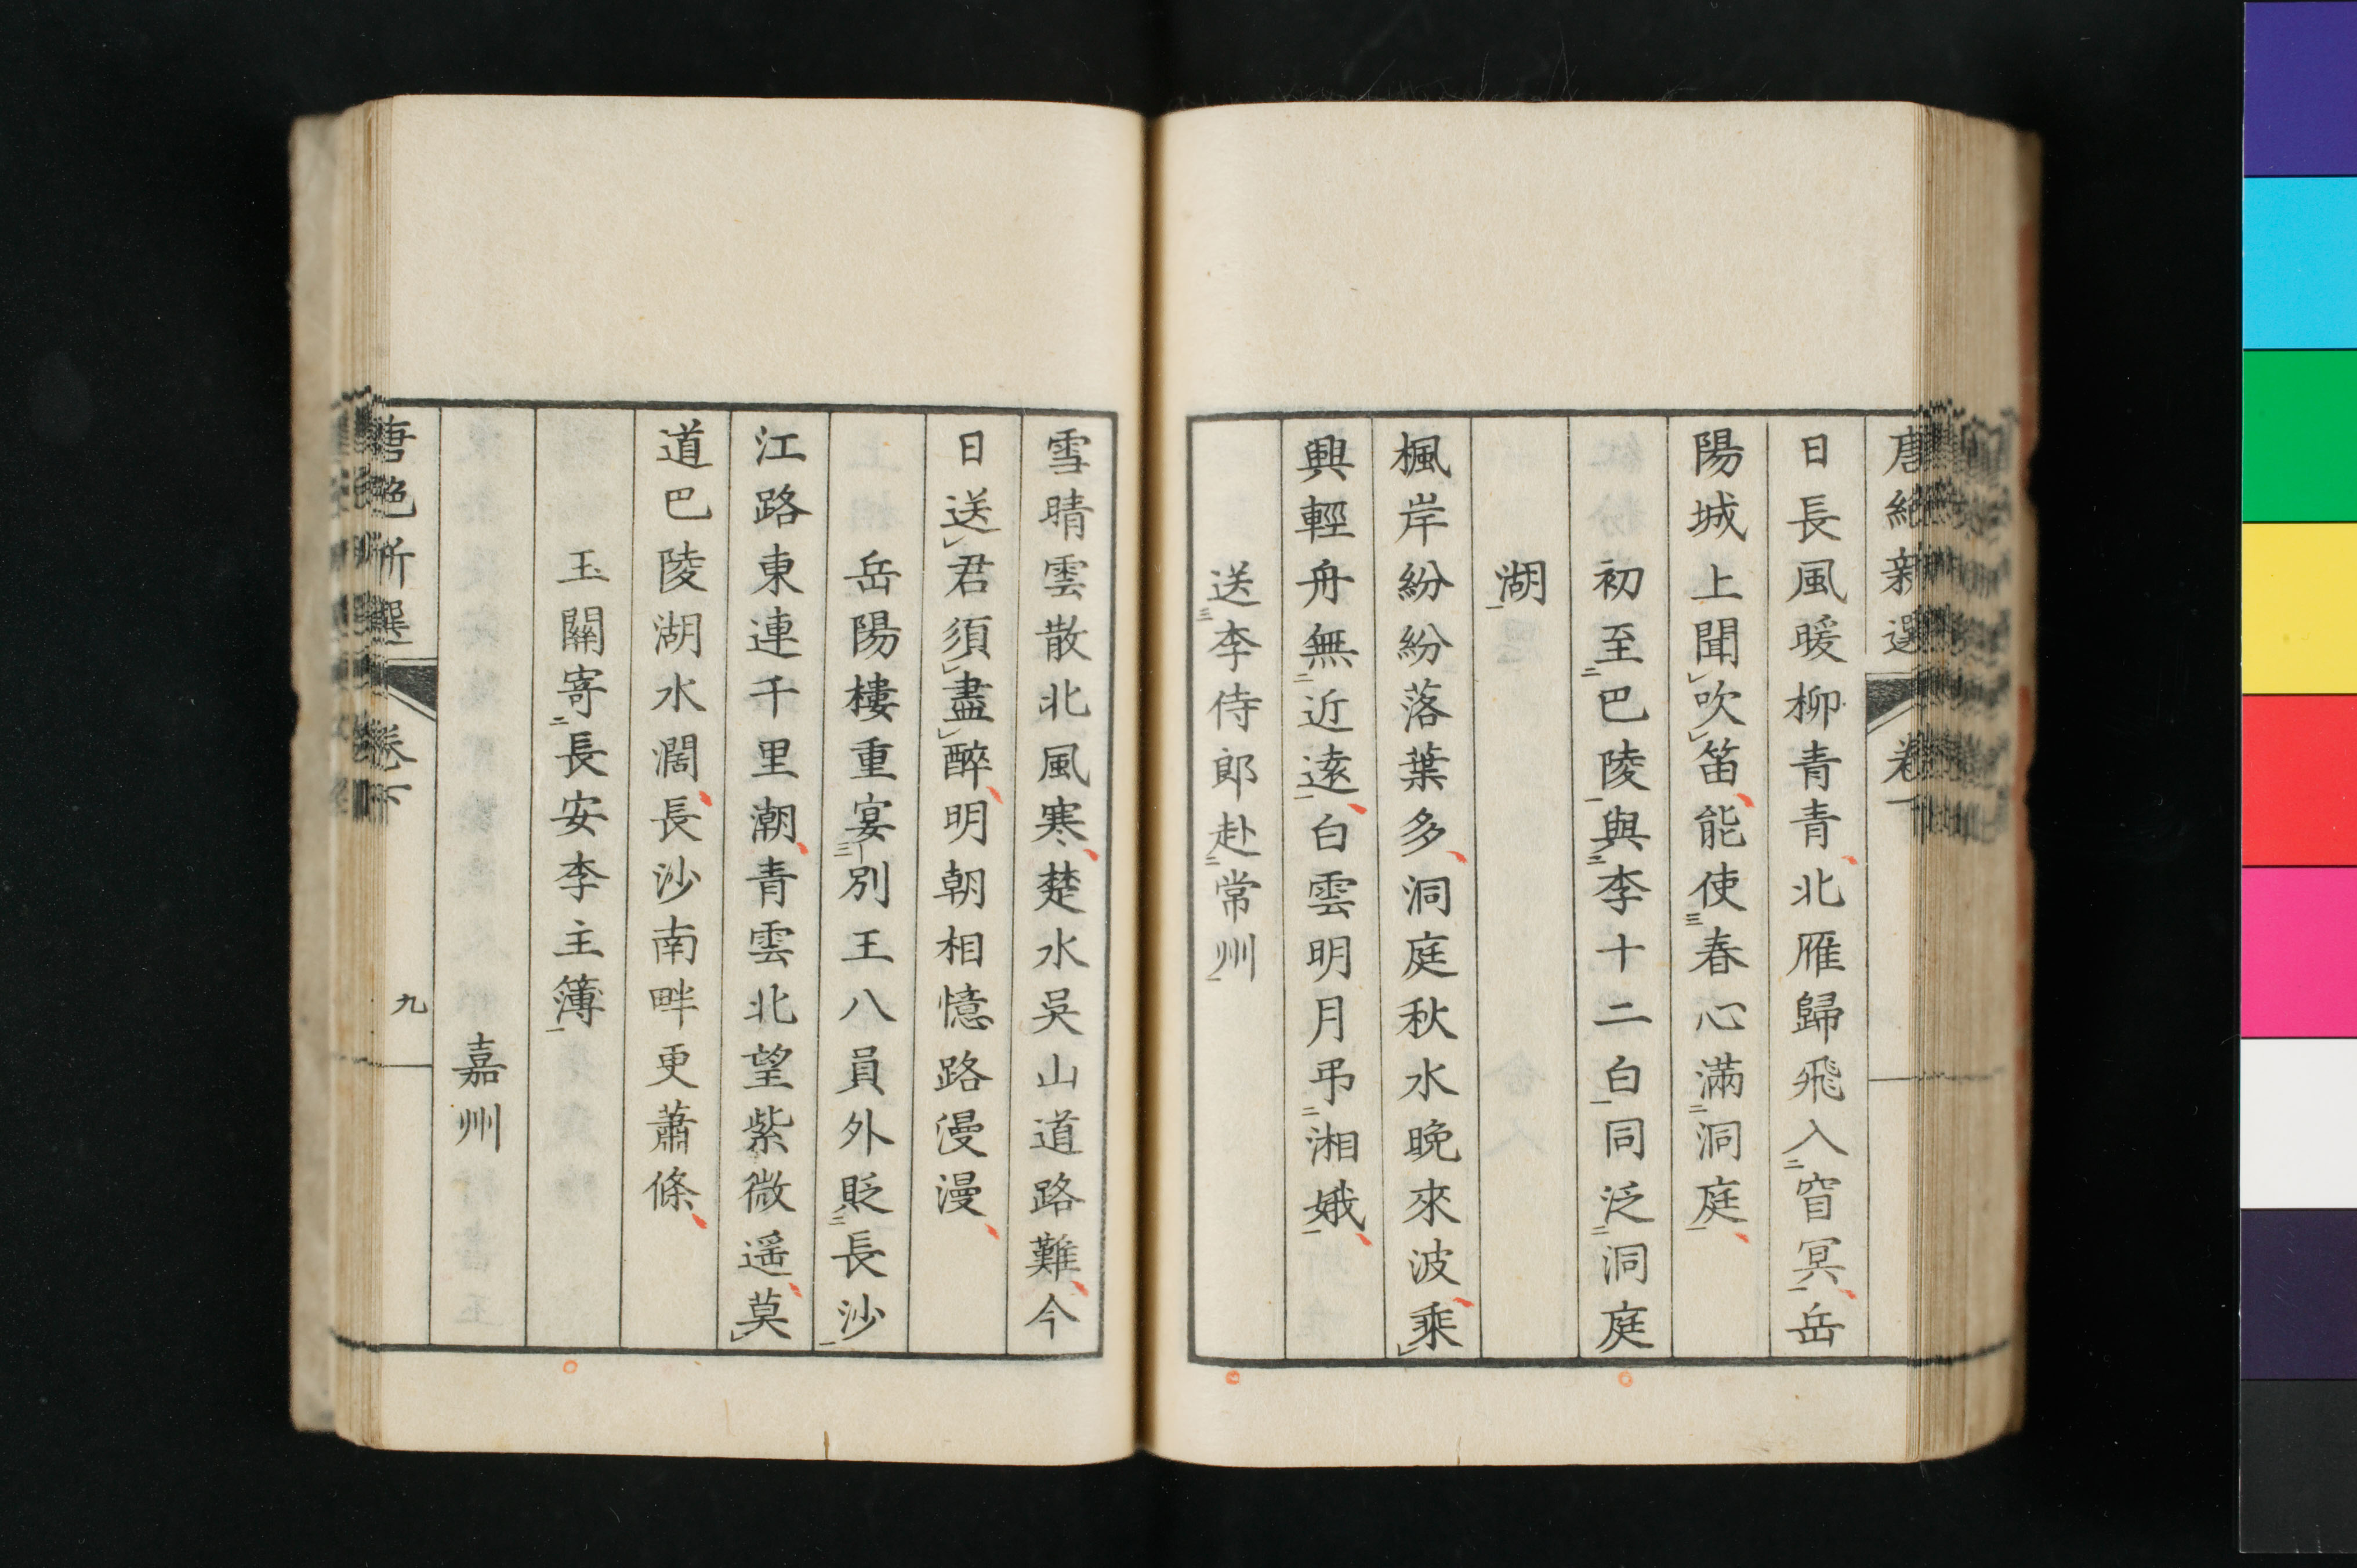 唐絶新選 卷下
日長風暖柳青青北雁歸飛入二窅冥一岳
陽城上聞吹笛能使三春心滿二洞庭一
初至二巴陵一與二李十二白一同泛二洞庭
湖一
楓岸紛紛落葉多洞庭秋水晩來波乘
興輕舟無二近遠一白雲明月弔二湘娥一
送三李侍郎赴二常州一
雪晴雲散北風寒楚水吳山道路難今
日送君須盡醉明朝相憶路漫漫
岳陽樓重宴三別王八員外貶二長沙一
江路東連千里潮青雲北望紫微遥莫
道巴陵湖水濶長沙南畔更蕭條
玉關寄二長安李主簿一
嘉州
唐絶新選 卷下 九